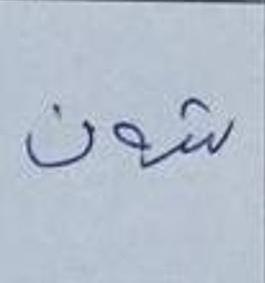 شون